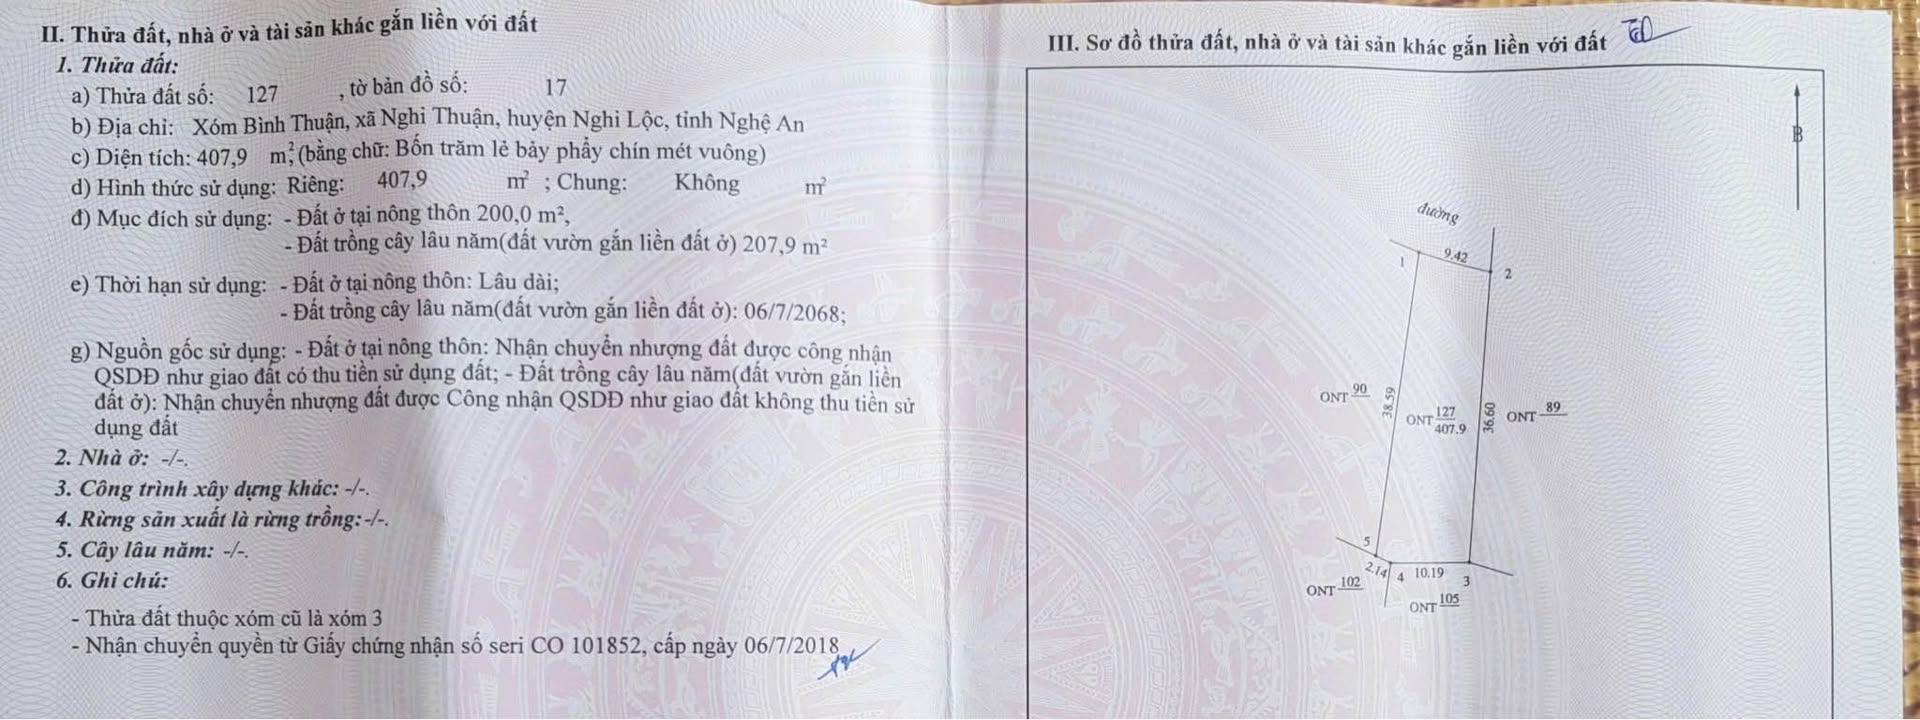 II. Thửa đất, nhà ở và tài sản khác gắn liền với đất
1. Thửa đất:
a) Thửa đất số: 127 , tờ bản đồ số: 17
b) Địa chỉ: Xóm Bình Thuận, xã Nghi Thuận, huyện Nghi Lộc, tỉnh Nghệ An
c) Diện tích: 407,9 m², (bằng chữ: Bốn trăm lẻ bảy phẩy chín mét vuông)
d) Hình thức sử dụng: Riêng: 407,9 m² ; Chung: Không m²
đ) Mục đích sử dụng: - Đất ở tại nông thôn 200,0 m²,
- Đất trồng cây lâu năm(đất vườn gắn liền đất ở) 207,9 m²
e) Thời hạn sử dụng: - Đất ở tại nông thôn: Lâu dài;
- Đất trồng cây lâu năm(đất vườn gắn liền đất ở): 06/7/2068;
g) Nguồn gốc sử dụng: - Đất ở tại nông thôn: Nhận chuyển nhượng đất được công nhận
QSDĐ như giao đất có thu tiền sử dụng đất; - Đất trồng cây lâu năm(đất vườn gắn liền
đất ở): Nhận chuyển nhượng đất được Công nhận QSDĐ như giao đất không thu tiền sử
dụng đất
2. Nhà ở: -/-.
3. Công trình xây dựng khác: -/-.
4. Rừng sản xuất là rừng trồng:-/-.
5. Cây lâu năm: -/-.
6. Ghi chú:
- Thửa đất thuộc xóm cũ là xóm 3
- Nhận chuyển quyền từ Giấy chứng nhận số seri CO 101852, cấp ngày 06/7/2018
III. Sơ đồ thửa đất, nhà ở và tài sản khác gắn liền với đất
B
đường
1
9.42
2
ONT 90
38.59
ONT 127
407.9
36.60
ONT 89
5
2.14
4
10.19
3
ONT 102
ONT 105